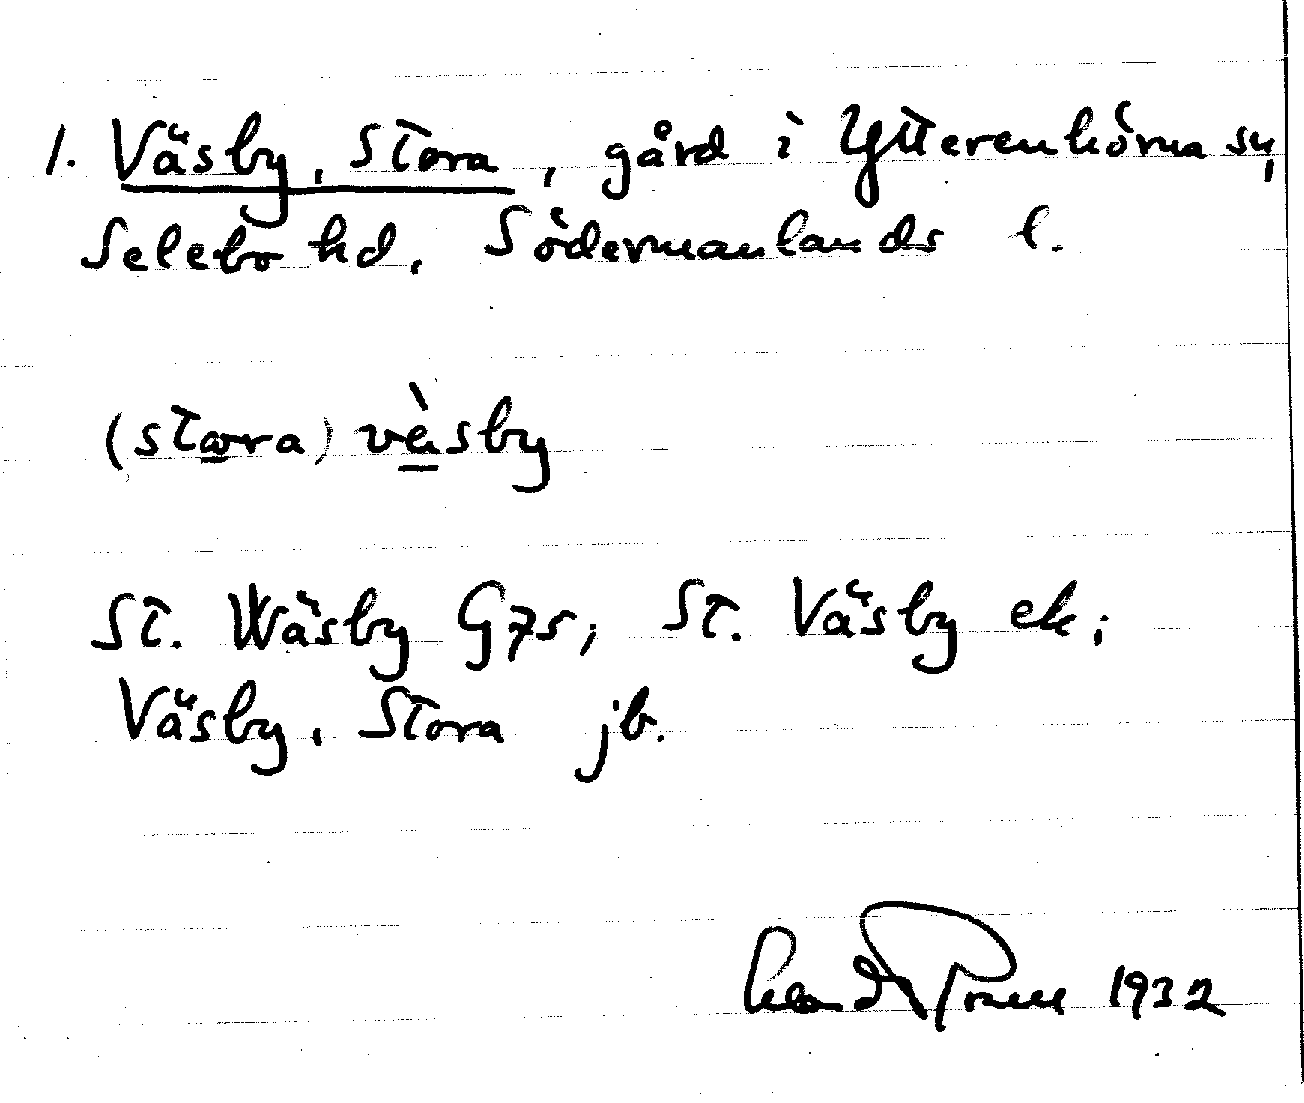 1. Väsby, Stora, gård i Ytterenhörna sn,
Selebo hd, Södermanlands l.
(stora) vèsby
St. Wäsby G75; St. Väsby ek;
Väsby, Stora jb.
1932